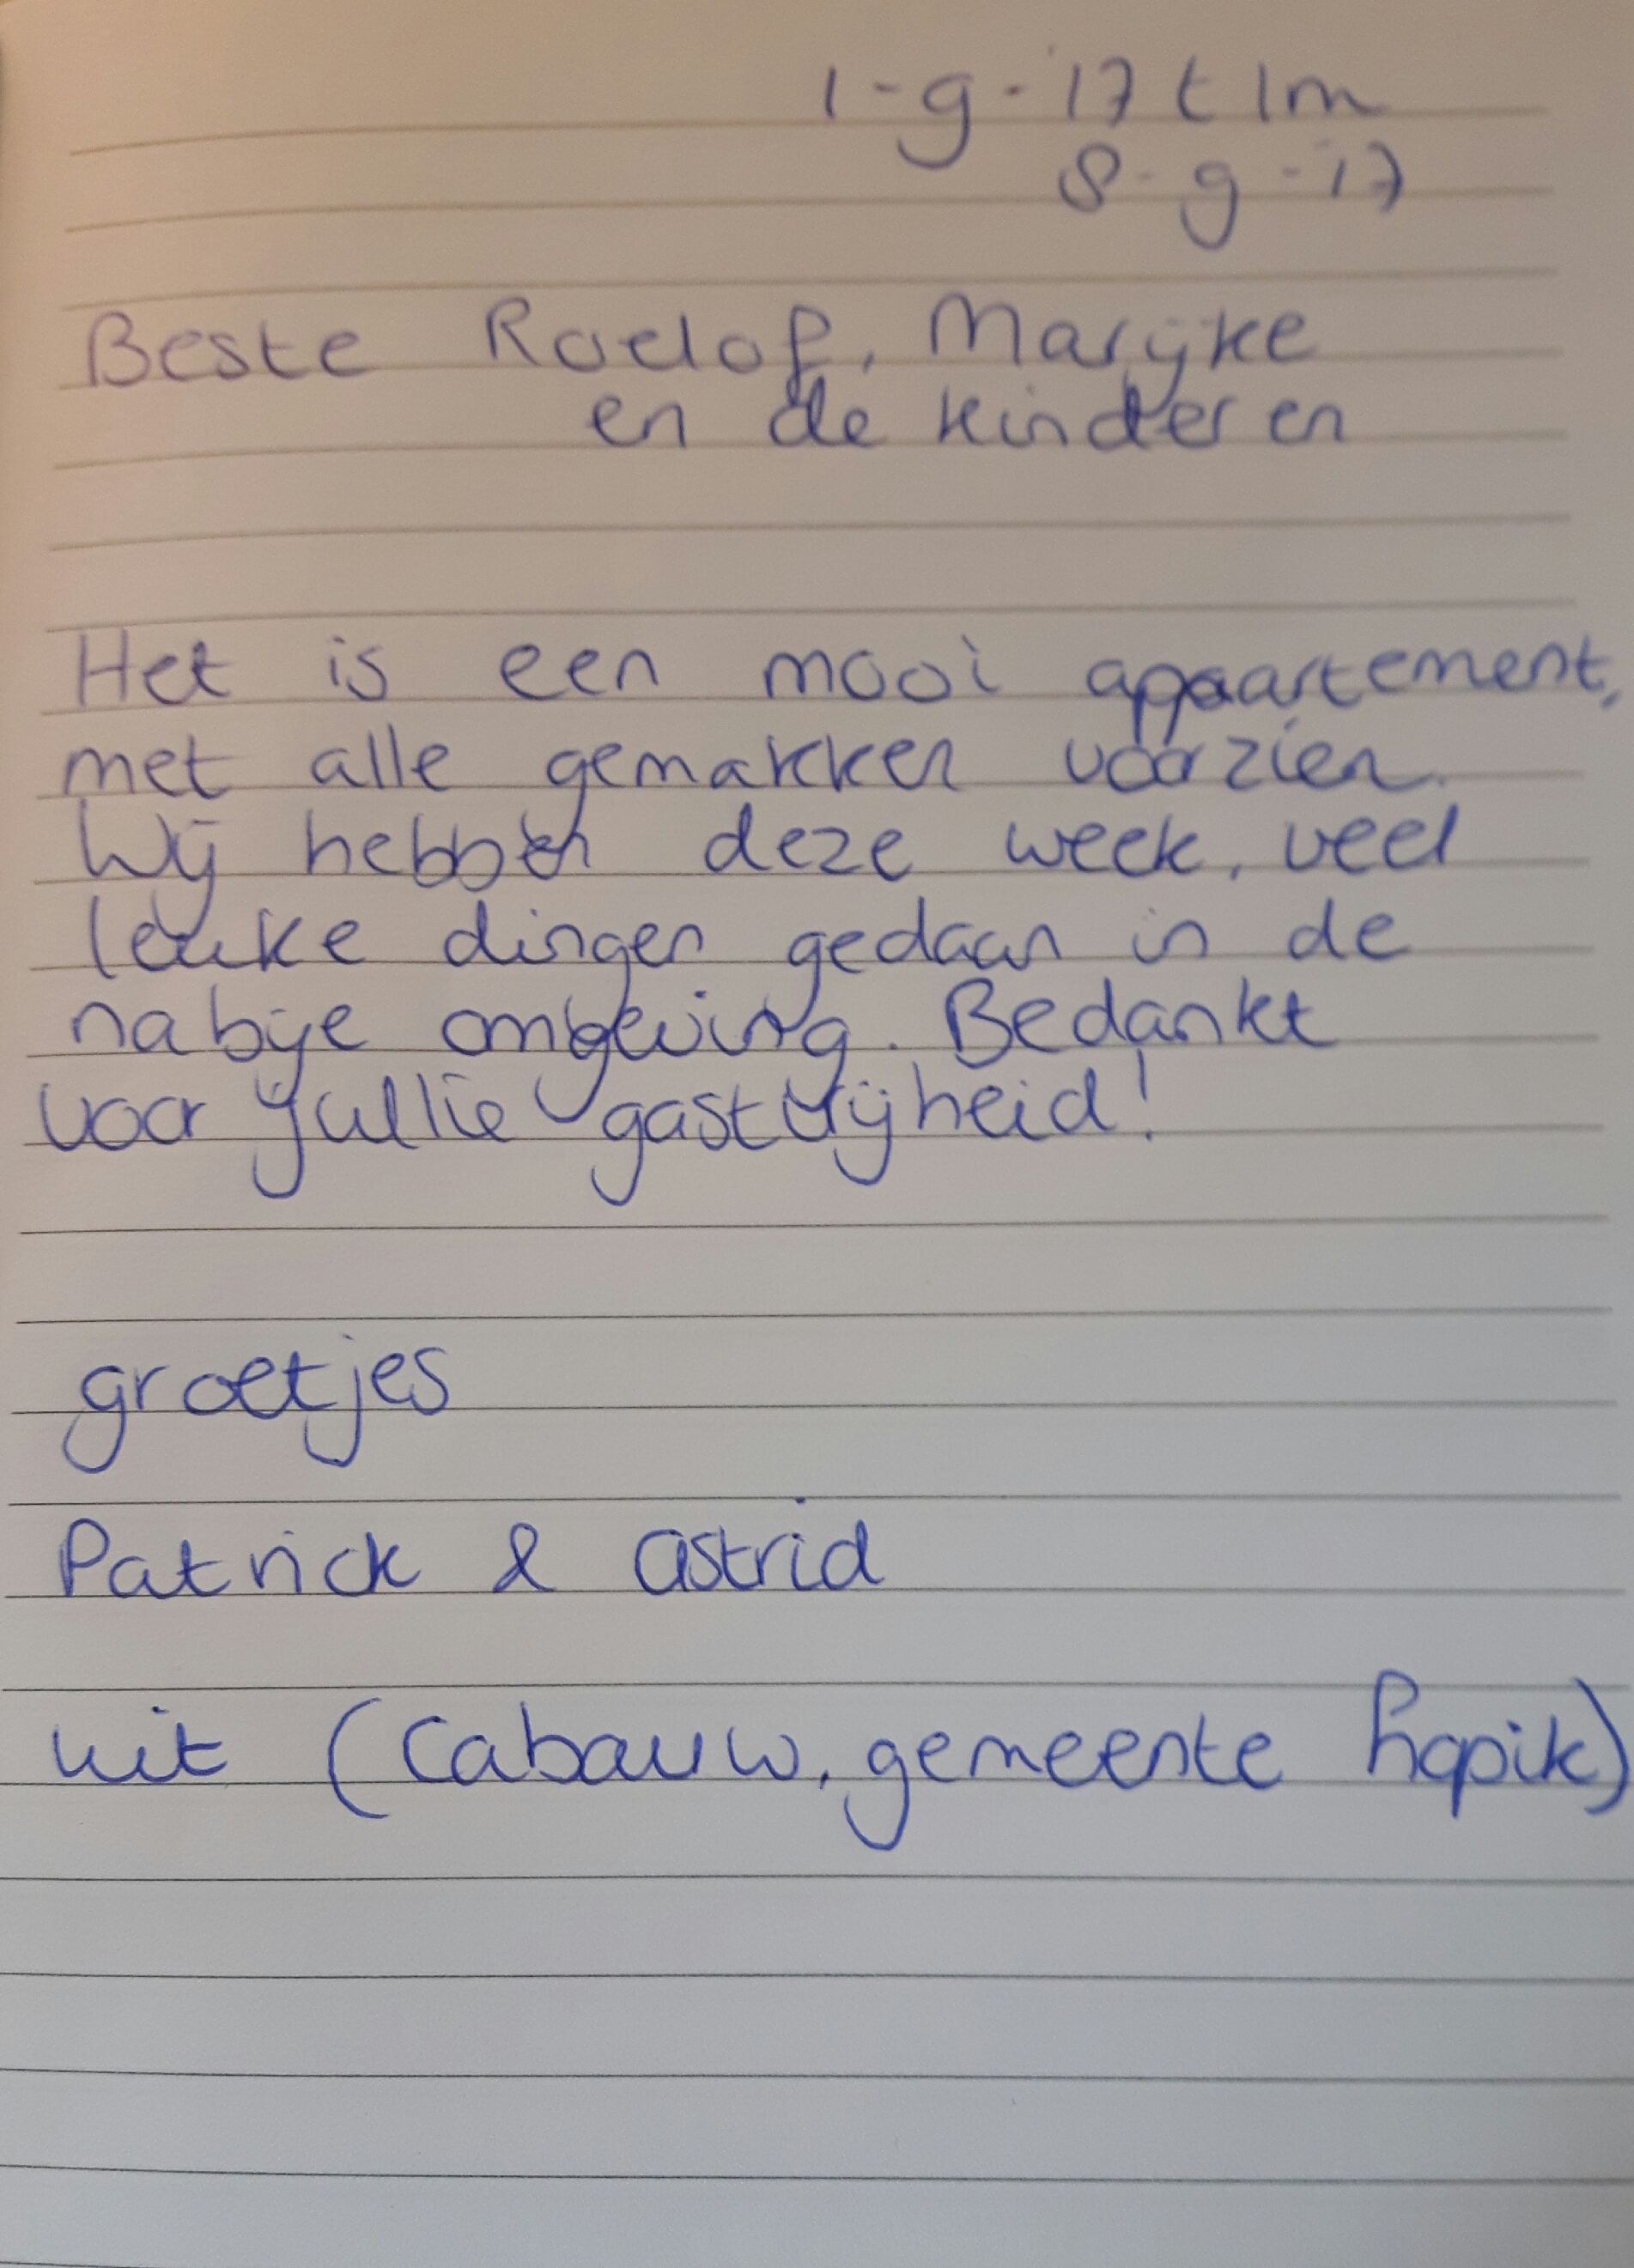 1-9-'17 t/m
8-9-'17
Beste Roelof, Marijke
en de kinderen
Het is een mooi appaartement,
met alle gemakken voorzien.
Wij hebben deze week, veel
leuke dingen gedaan in de
nabije omgeving. Bedankt
voor jullie gastvrijheid!
groetjes
Patrick & Astrid
uit (Cabauw, gemeente Lopik)